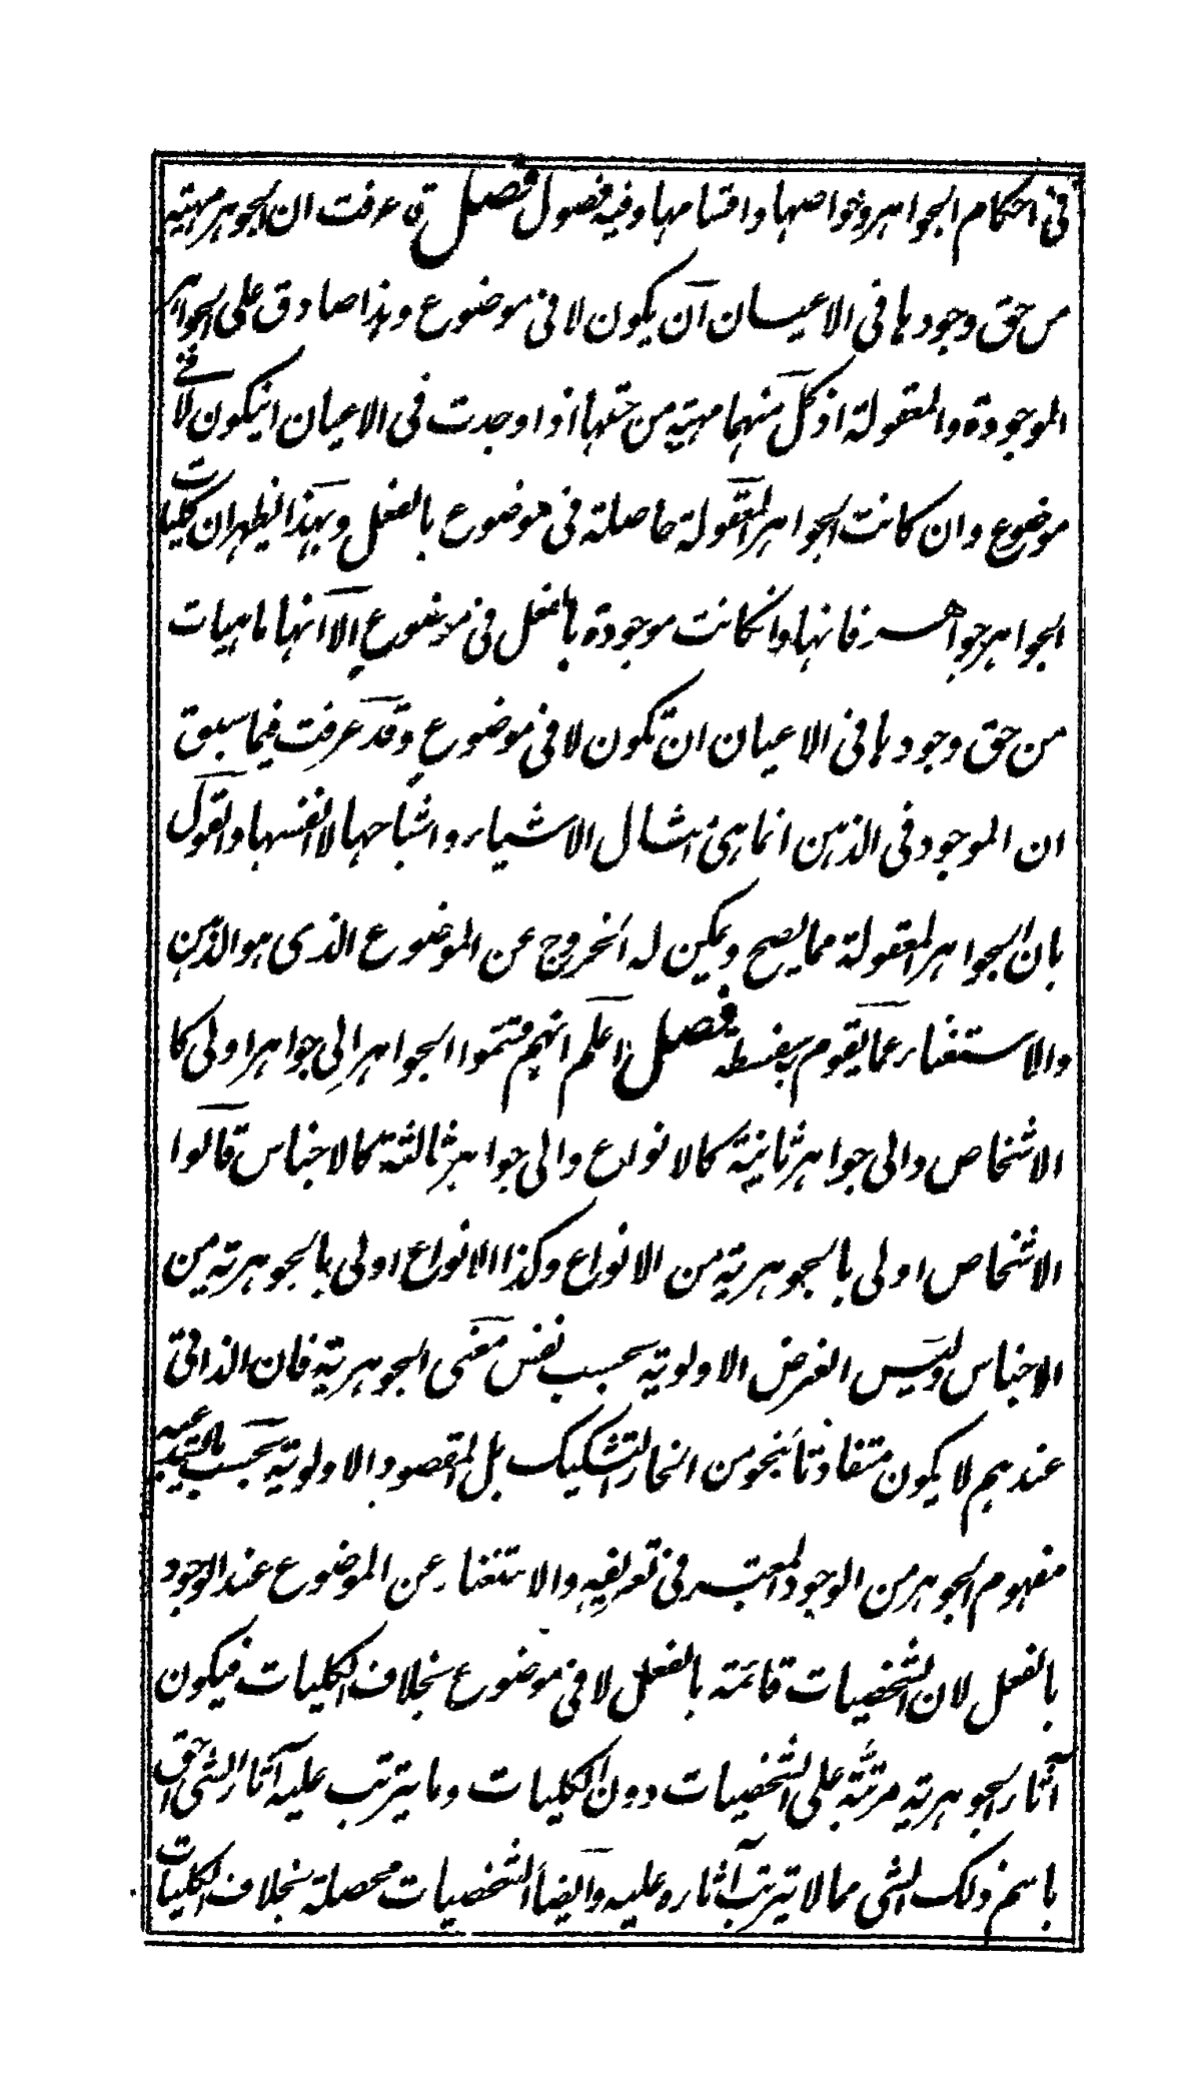 فى احكام الجواهر وخواصها واقسامها وفيه فصول فصل قد عرفت ان الجوهر مهية
من حق وجودها فى الاعيان ان يكون لا فى موضوع وهذا صادق على الجواهر
الموجودة والمعقولة اذ كل منهما مهية من حقها اذا وجدت فى الاعيان انيكون لا فى
موضوع وان كانت الجواهر المعقولة حاصلة فى موضوع بالفعل وبهذا يظهر ان كليات
الجواهر جواهر فانها وانكانت موجودة بالفعل فى موضوع الا انها ماهيات
من حق وجودها فى الاعيان ان تكون لا فى موضوع وقد عرفت فيما سبق
ان الموجود فى الذهن انما هى امثال الاشياء واشباحها لا انفسها والقول
بان الجواهر المعقولة مما يصح ويمكن له الخروج عن الموضوع الذى هو الذهن
والاستغناء عما يقوم به سفسطة فصل اعلم انهم قسموا الجواهر الى جواهر اولى كا
الاشخاص والى جواهر ثانية كالانواع والى جواهر ثالثة كالاجناس قالوا
الاشخاص اولى بالجوهرية من الانواع وكذا الانواع اولى بالجوهرية من
الاجناس وليس الغرض الاولوية بحسب نفس معنى الجوهرية فان الذاتى
عندهم لا يكون متفاوتا بنحو من انحاء التشكيك بل المقصود الاولوية بحسب ما
مفهوم الجوهر من الوجود المعتبر فى تعريفه والاستغناء عن الموضوع عند الوجود
بالفعل لان الشخصيات قائمة بالفعل لا فى موضوع بخلاف الكليات فيكون
آثار الجوهرية مرتبة على الشخصيات دون الكليات وما يترتب عليه آثار الشى احق
باسم ذلك الشى مما لا يترتب آثاره عليه وايضا الشخصيات محصلة بخلاف الكليات